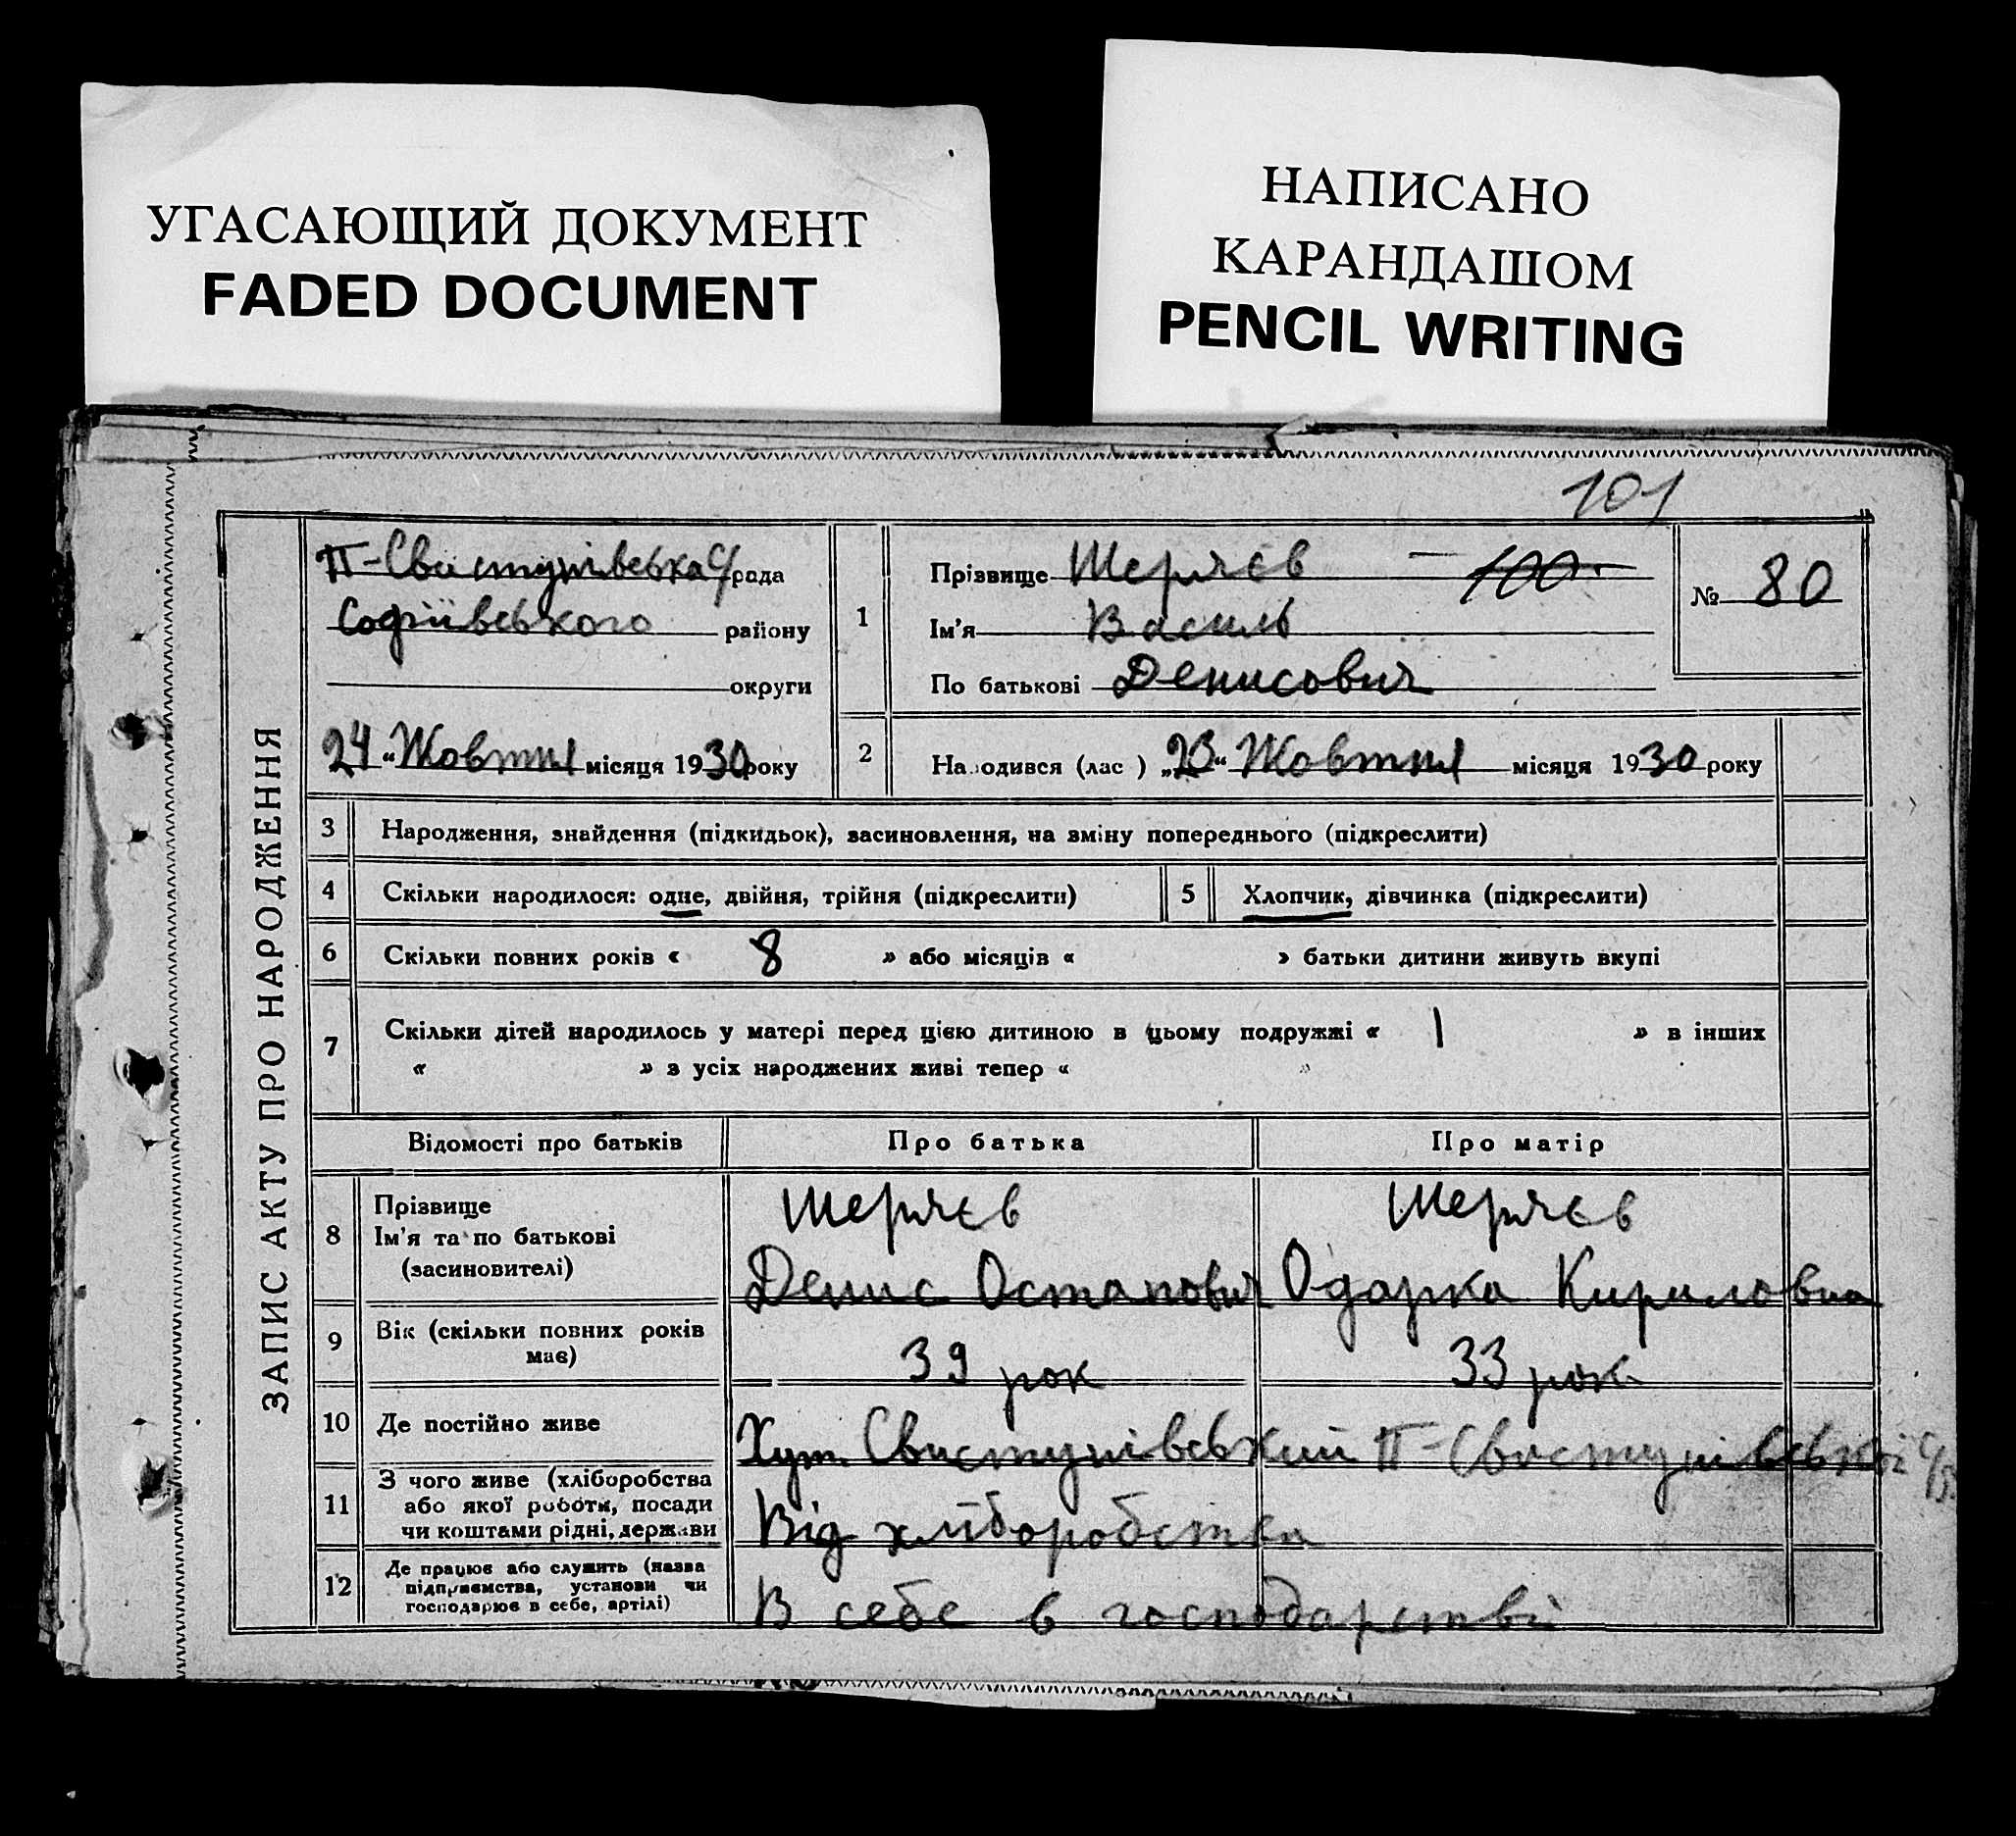 УГАСАЮЩИЙ ДОКУМЕНТ
FADED DOCUMENT
НАПИСАНО
КАРАНДАШОМ
PENCIL WRITING
101
ЗАПИС АКТУ ПРО НАРОДЖЕННЯ
П-Свистунівська С/рада
Софіївського району
округи
24 "Жовтня місяця 1930 року
1
Прізвище Шерячєв 100
Ім'я Василь
По батькові Денисович
№ 80
2 На одився (лас ) „23“ Жовтня місяця 1930 року
3 Народження, знайдення (підкидьок), засиновлення, на зміну попереднього (підкреслити)
4 Скільки народилося: одне, двійня, трійня (підкреслити) 5 Хлопчик, дівчинка (підкреслити)
6 Скільки повних років « 8 » або місяців « » батьки дитини живуть вкупі
7 Скільки дітей народилось у матері перед цією дитиною в цьому подружжі « 1 » в інших
« » з усіх народжених живі тепер « »
Відомості про батьків Про батька Про матір
8 Прізвище
Ім'я та по батькові
(засиновителі)
Шерячєв Шерячєв
Денис Остапович Одарка Кириловна
9 Вік (скільки повних років
має)
39 рок 33 рок
10 Де постійно живе Хут. Свистунівський П-Свистунівської С/р.
11 З чого живе (хліборобства
або якої роботи, посади
чи коштами рідні, держави
Від хліборобства
12 Де працює або служить (назва
підприємства, установи чи
господарює в себе, артілі)
В себе в господарстві